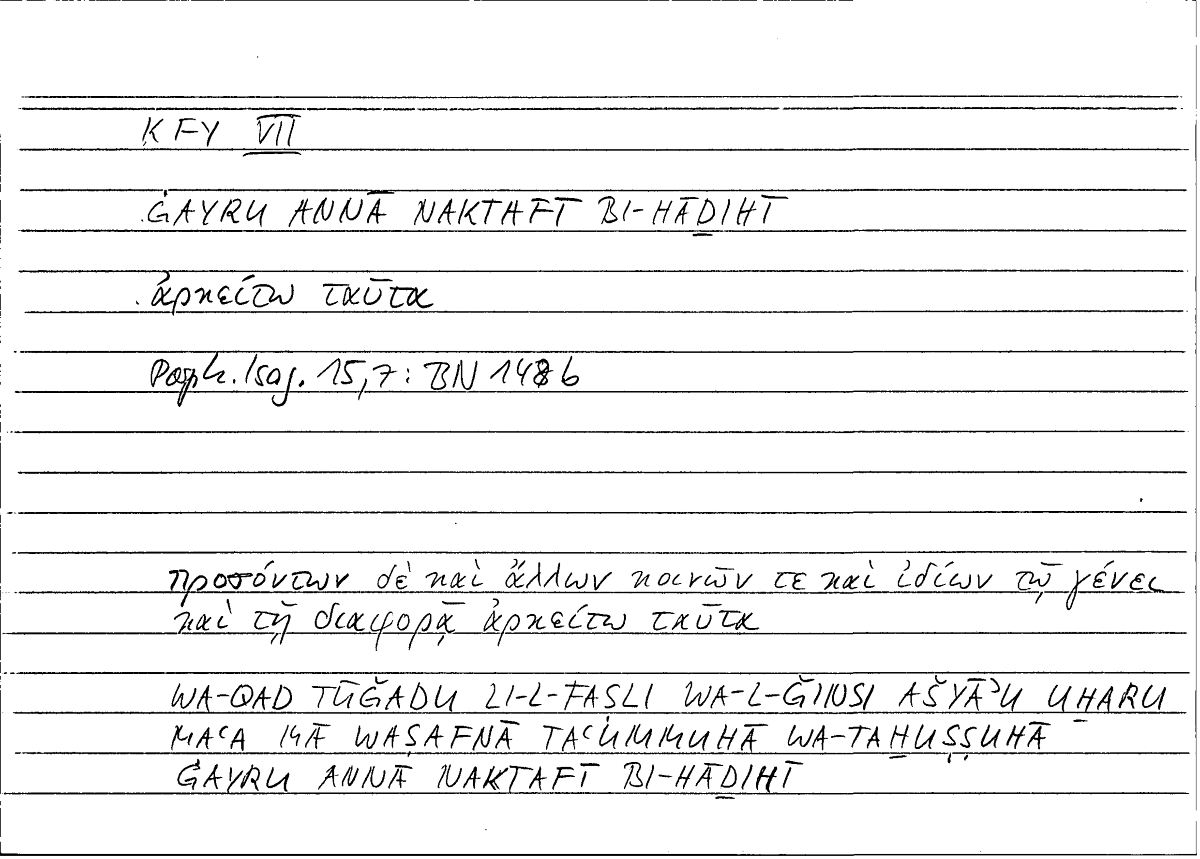 KFY VII
ĠAYRU ANNĀ NAKTAFĪ BI-HĀḎIHĪ
ἀρκείτω ταῦτα
Porph. Isag. 15,7: BN 148b
προσόντων δὲ καὶ ἄλλων κοινῶν τε καὶ ἰδίων τῷ γένει
καὶ τῇ διαφορᾷ ἀρκείτω ταῦτα
WA-QAD TŪǦADU LI-L-FAṢLI WA-L-ǦINSI AŠYĀʾU UḪARU
MAʿA MĀ WAṢAFNĀ TAʿUMMUHĀ WA-TAḪUṢṢUHĀ
ĠAYRU ANNĀ NAKTAFĪ BI-HĀḎIHĪ